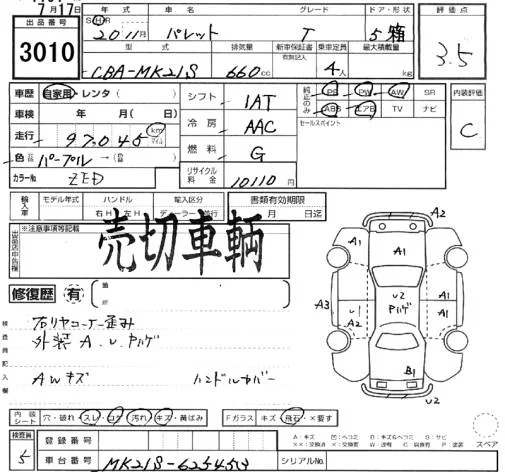 7月17日
出品番号
3010
年式 車名 グレード ドア・形状
SHR
20年11月 パレット T 5 箱
評価点
3.5
型式 排気量 新車保証書 乗車定員 最大積載量
有無記入
CBA-MK21S 660cc 4人 kg
車歴 自家用・レンタ ( )
車検 年 月( 日)
走行 97045 km マイル
色 パープル → ( )
カラーNo ZED
シフト IAT
冷房 AAC
燃料 G
リサイクル料金 10110円
純正のみ
PS PW AW SR
ABS エアB TV ナビ
セールスポイント
内装評価
C
輸入車 モデル年式 ハンドル 輸入区分
右H 左H ディーラー 並行
書類有効期限
月 日迄
※注意事項等記載
売切車輌
修復歴 有
右リヤコーナー歪み
外装 A.U.Pハゲ
AWキズ ハンドルカバー
A2
A1 A1
A3 A1
U1 U2 A1
A2 Pハゲ
B1
U2
内装シート 穴・破れ スレ・コゲ 汚れ キズ・黄ばみ
Fガラス キズ・飛石・×要す
スペア
検査員
5
登録番号
車台番号 MK21S-625454
シリアルNo.